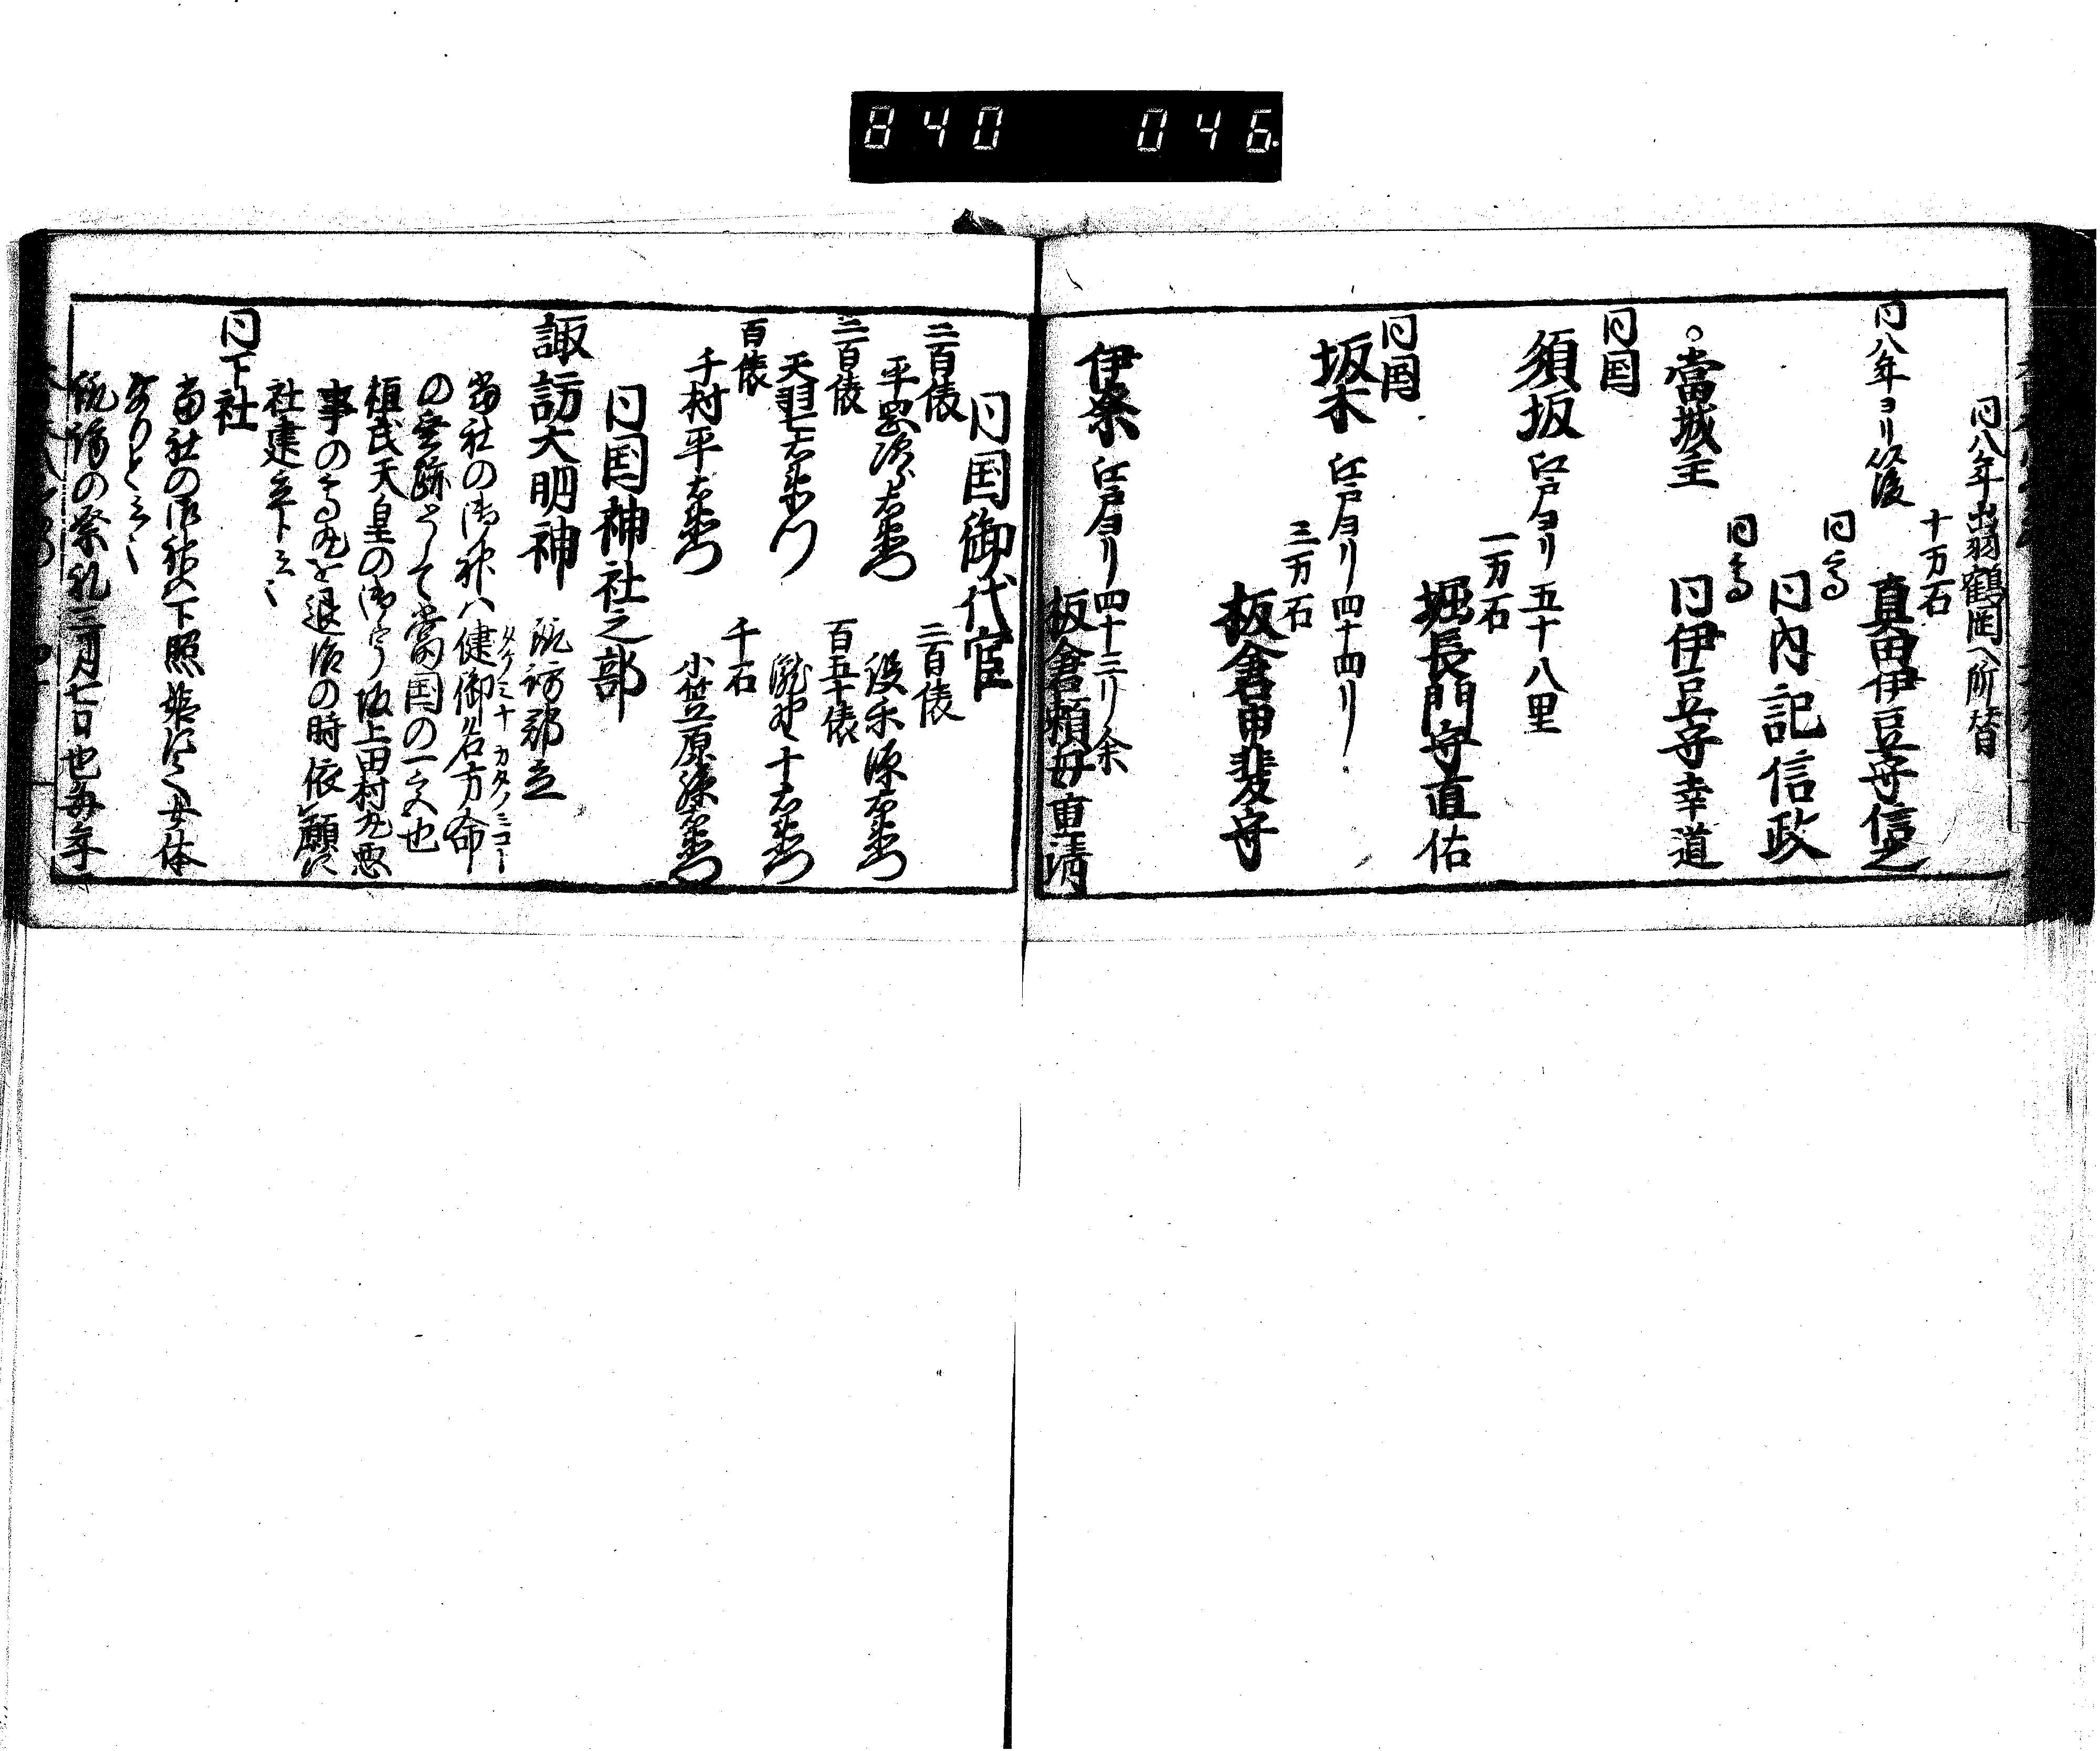 840 046
同八年出羽鶴岡へ所替
十万石
同八年ヨリ以後 真田伊豆守信之
同高
同内記信政
同高
○當城主 同伊豆守幸道
同国
須坂 江戸ヨリ五十八里
一万石
堀長門守直佑
同国
坂木 江戸ヨリ四十四リ
三万石
板倉甲斐守
伊奈 江戸ヨリ四十三リ余
板倉頼母重清
同国御代官
二百俵 二百俵
平岡次郎右衛門 設楽源右衛門
二百俵 百五十俵
天羽七右衛門 瀧野十右衛門
百俵 千石
千村平右衛門 小笠原源右衛門
同国神社之部
諏訪大明神 諏訪郡立
當社の御神ハ健御名方命
タケミナカタノミコト
の垂跡として當国の一宮也
桓武天皇の御宇坂上田村丸悪
事の高丸を退治の時依願に
社建立ト云〻
同下社
當社の御神ハ下照姫にて女体
なりと云〻
諏訪の祭礼三月七日也毎年